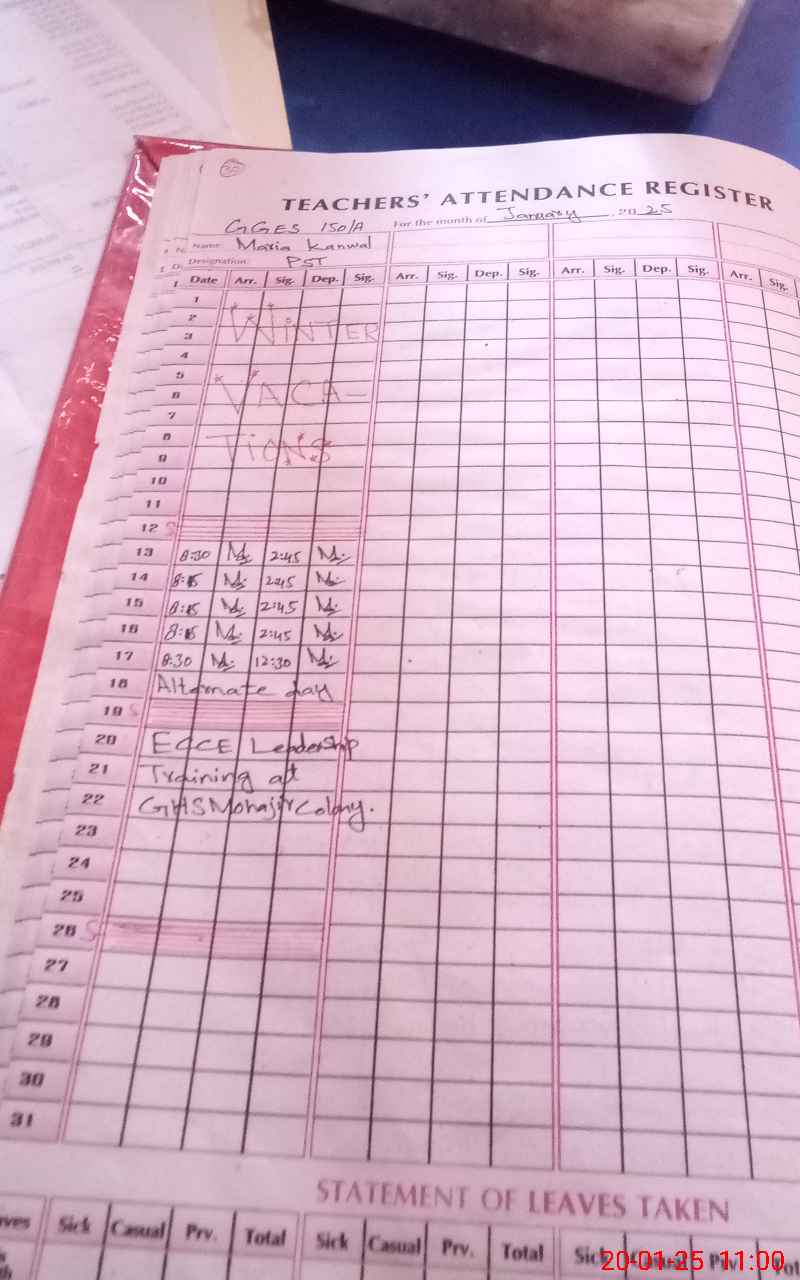 TEACHERS' ATTENDANCE REGISTER
GGES 150/A For the month of January, 2025
Name: Maria Kanwal
Designation: PST
Date Arr. Sig. Dep. Sig. Arr. Sig. Dep. Sig. Arr. Sig. Dep. Sig. Arr. Sig.
1
2
3 WINTER
4
5
6 VACA-
7
8
9 TIONS
10
11
12 S
13 8:30 M. 2:45 M.
14 8:15 M. 2:45 M.
15 8:15 M. 2:45 M.
16 8:15 M. 2:45 M.
17 8:30 M. 12:30 M.
18 Alternate day
19 S
20 ECCE Leadership
21 Training at
22 GHS Mohajir Colony.
23
24
25
26 S
27
28
29
30
31
STATEMENT OF LEAVES TAKEN
Sick Casual Prv. Total Sick Casual Prv. Total Sick Casual Prv.
20-01-25 11:00